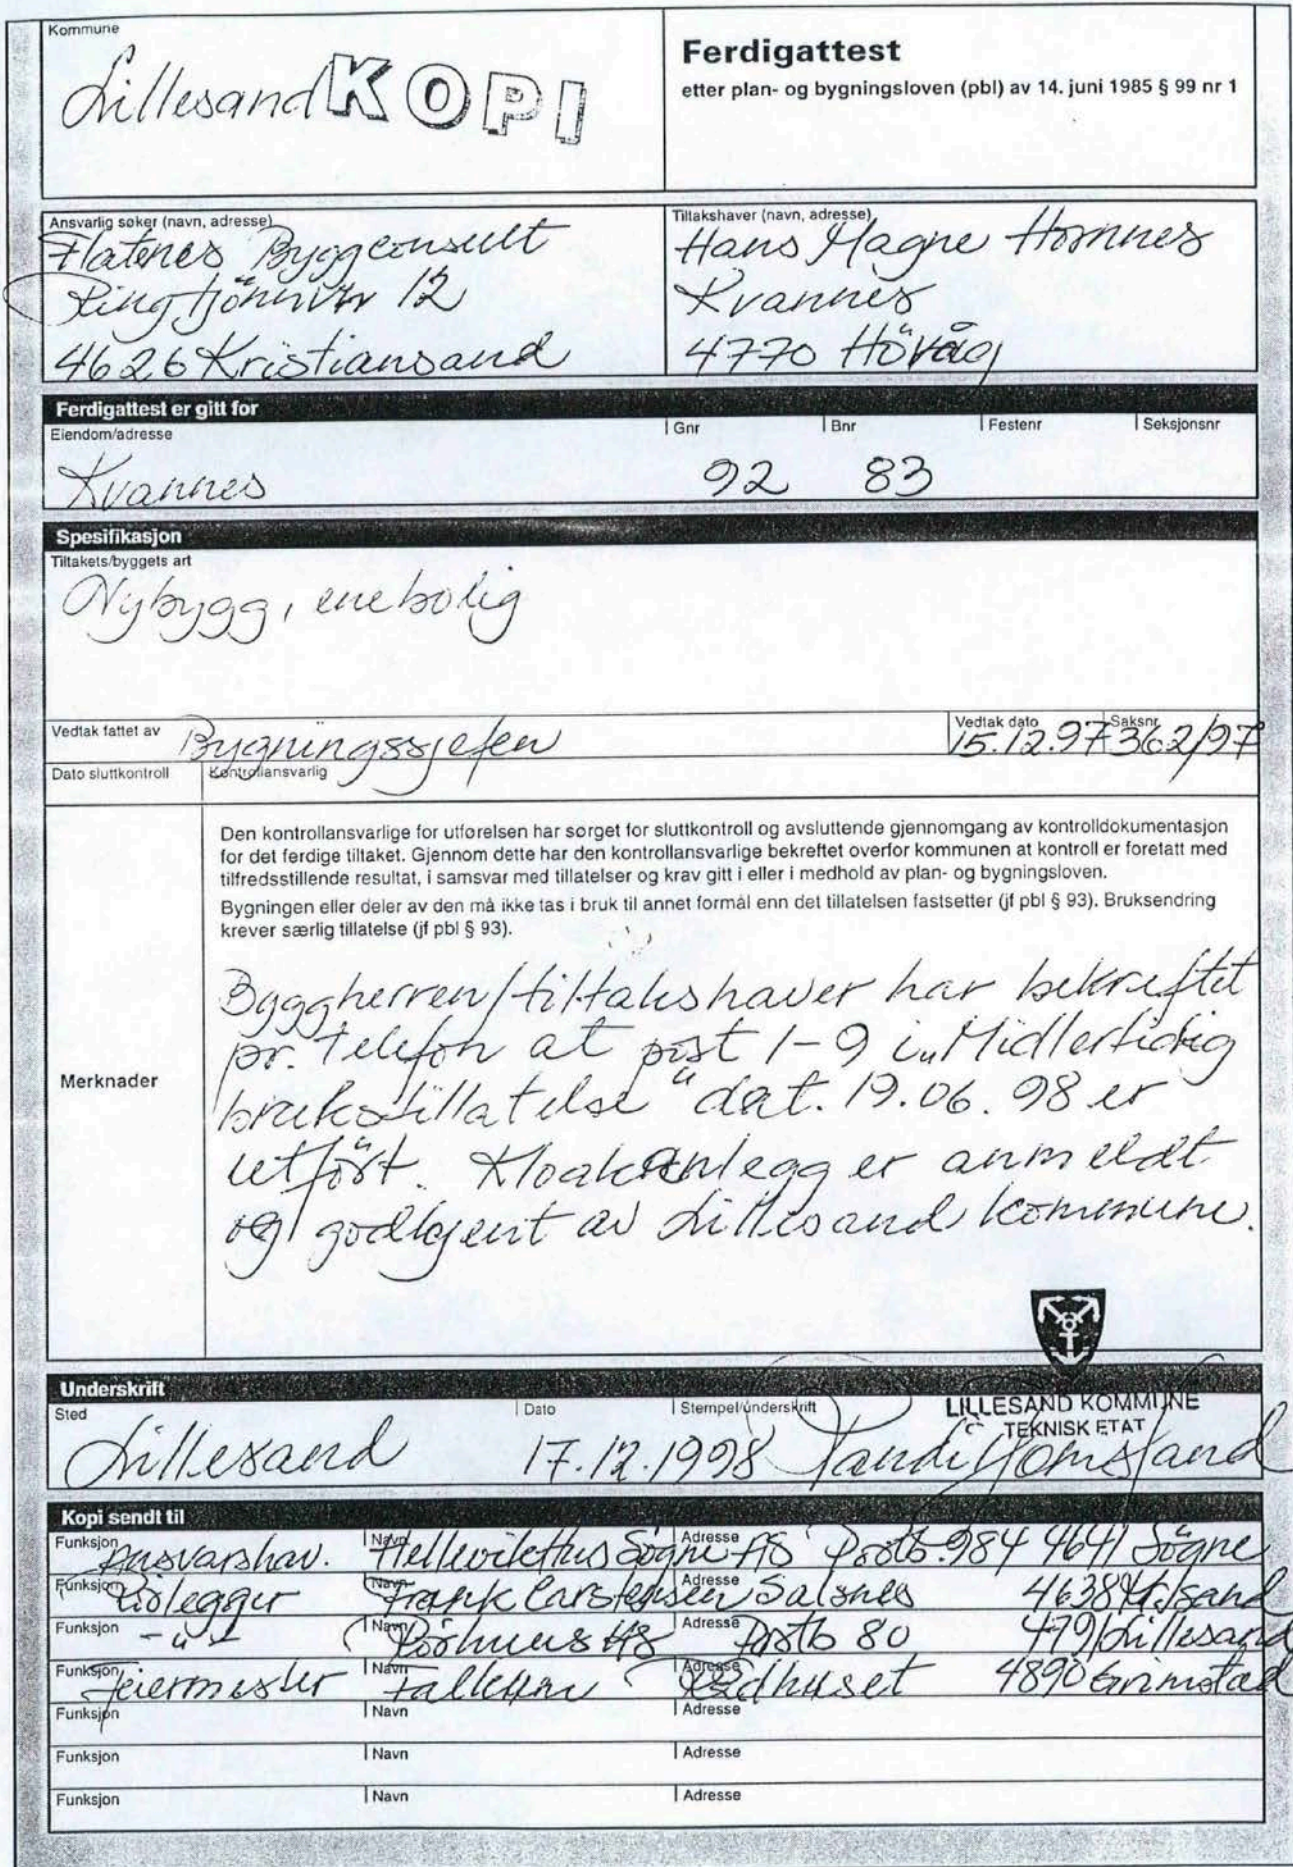 Kommune
Lillesand KOPI
Ferdigattest
etter plan- og bygningsloven (pbl) av 14. juni 1985 § 99 nr 1
Ansvarlig søker (navn, adresse)
Flatenes Byggconsult
Ringtjønnvn 12
4626 Kristiansand
Tiltakshaver (navn, adresse)
Hans Magne Homnes
Kvannes
4770 Hövåg
Ferdigattest er gitt for
Eiendom/adresse Gnr Bnr Festenr Seksjonsnr
Kvannes 92 83
Spesifikasjon
Tiltakets/byggets art
Nybygg, enebolig
Vedtak fattet av Bygningssjefen Vedtak dato 15.12.97 Saksnr 362/97
Dato sluttkontroll Kontrollansvarlig
Merknader
Den kontrollansvarlige for utførelsen har sørget for sluttkontroll og avsluttende gjennomgang av kontrolldokumentasjon
for det ferdige tiltaket. Gjennom dette har den kontrollansvarlige bekreftet overfor kommunen at kontroll er foretatt med
tilfredsstillende resultat, i samsvar med tillatelser og krav gitt i eller i medhold av plan- og bygningsloven.
Bygningen eller deler av den må ikke tas i bruk til annet formål enn det tillatelsen fastsetter (jf pbl § 93). Bruksendring
krever særlig tillatelse (jf pbl § 93).
Byggherren/tiltakshaver har bekreftet
pr. telefon at post 1-9 i „Midlertidig
brukstillatelse" dat. 19.06.98 er
utfört. Kloakkanlegg er anmeldt
og godkjent av Lillesand kommune.
Underskrift
Sted Dato Stempel/underskrift
LILLESAND KOMMUNE
TEKNISK ETAT
Lillesand 17.12.1998
Kopi sendt til
Funksjon Ansvarshav. Navn Hellevikhus Søgne AS Adresse Postb. 984 4641 Sögne
Funksjon Rölegger Navn Frank Carstensen Adresse Salsnes 4638 Kr.sand
Funksjon -"- Navn Rörhuus AS Adresse Postb 80 4791 Lillesand
Funksjon Feiermester Navn Adresse Rådhuset 4890 Grimstad
Funksjon Navn Adresse
Funksjon Navn Adresse
Funksjon Navn Adresse